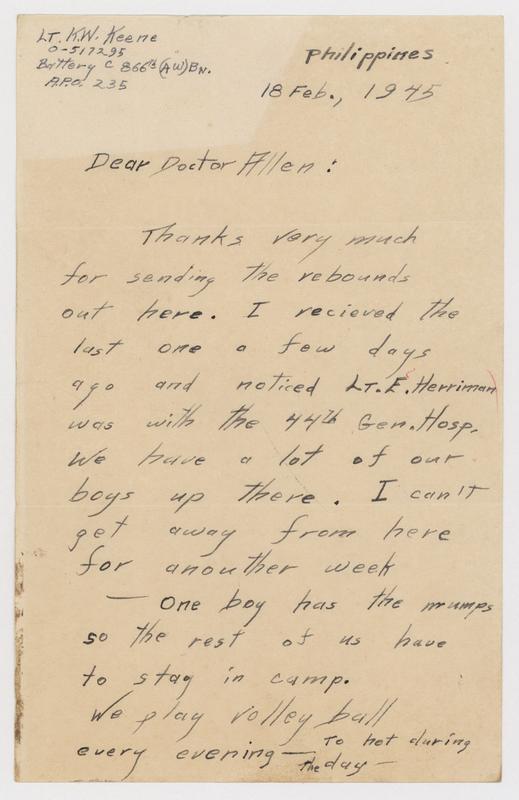 Lt. K.W. Keene
O-517295
Battery C 866th (AW) Bn.
A.P.O. 235
Philippines
18 Feb., 1945
Dear Doctor Allen :
Thanks very much
for sending the rebounds
out here. I recieved the
last one a few days
ago and noticed Lt. E. Herriman
was with the 44th Gen. Hosp.
We have a lot of our
boys up there. I can't
get away from here
for anouther week
— One boy has the mumps
so the rest of us have
to stay in camp.
We play volley ball
every evening — To hot during
the day —